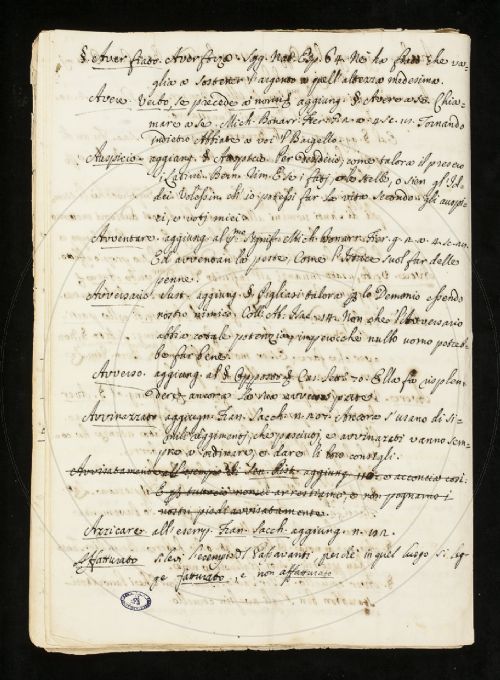 §. Aver fiato. Aver forza. Sag. Nat. Esp. 64. Nè ha fiato che va-
glia a sostener l'argento a quell'altezza medesima.
Avere Verbo, se precede a nomi aggiung. §. Avere a se. Chia-
mare a se. Mich. Bonarr. Fier. a. 4. sc. Tornando
indietro Abbiate a voi 'l Bargello.
Auspicio. aggiung. §. Auspicio Per Indizio, come talora il preser
i Latini. Bern. Rim. E se i fati, o le stelle, o sien gl'Id-
dei Volessin ch'io potessi far la vita Secondo gli auspi-
ci, e voti miei.
Avventare. aggiung. al Mich. Bonarr. Fier. g. a. 4. sc.
Ed avventan le poste, Come l'Istrice suol far delle
penne.
Avversario. Sust. aggiung. §. Pigliasi talora lo Demonio essendo
nostro nimico. Coll. Ab. Isac. 14. Non che l'Avversario
abbia cotale potenzia, imperocchè nullo uomo potreb-
be far bene.
Avverso. aggiung. al §. Opposto §. Car. lett. 70. Ella fa risplen-
dere ancora la sua avversa parte.
Avvinazzato aggiugn. Fran. Sacch. n. 207. Ancora s'usano di si-
mili reggimenti, che pasciuti, e avvinazzati vanno sem-
pre a ordinare, e dare li loro consigli.
Avvisatamente all'esempio di Sen. Pist. aggiung. e acconcia così.
E tuttavia non ci arrestiamo, e non pognamo i
nostri piedi avvisatamente.
Azzicare all'esemp. Fran. Sacch. aggiung. n. 192.
Affatturato si levi l'esempio del Passavanti, perchè in quel luogo si leg-
ge fatturato, e non affatturato